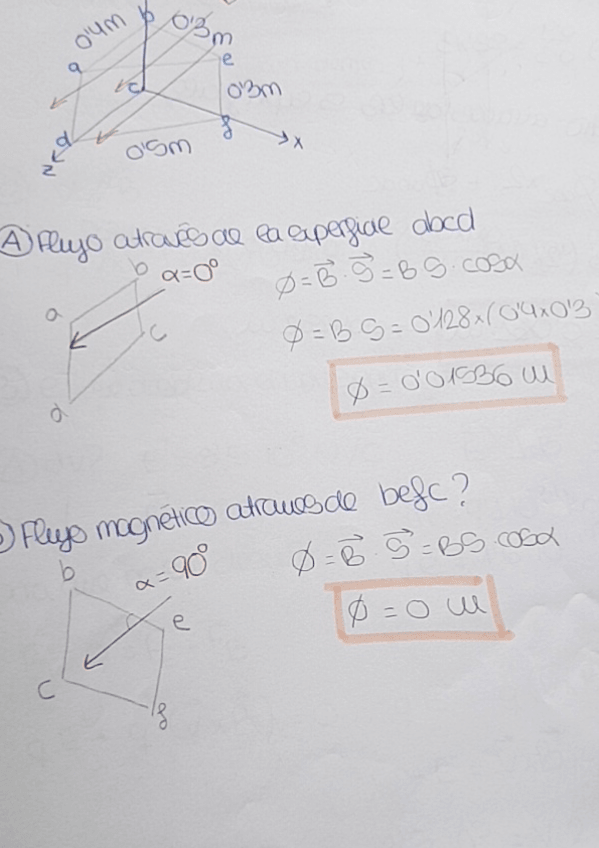 0'4m b 0'3m
a e
c 0'3m
d f
z 0'5m x
A) Flujo através de la superficie abcd
b α=0°
a c
d
Φ = B⃗ · S⃗ = B S · cosα
Φ = B S = 0'128 × (0'4 × 0'3
Φ = 0'01536 W
) Flujo magnético atraves de befc?
b α=90°
e
c f
Φ = B⃗ · S⃗ = BS · cosα
Φ = 0 W